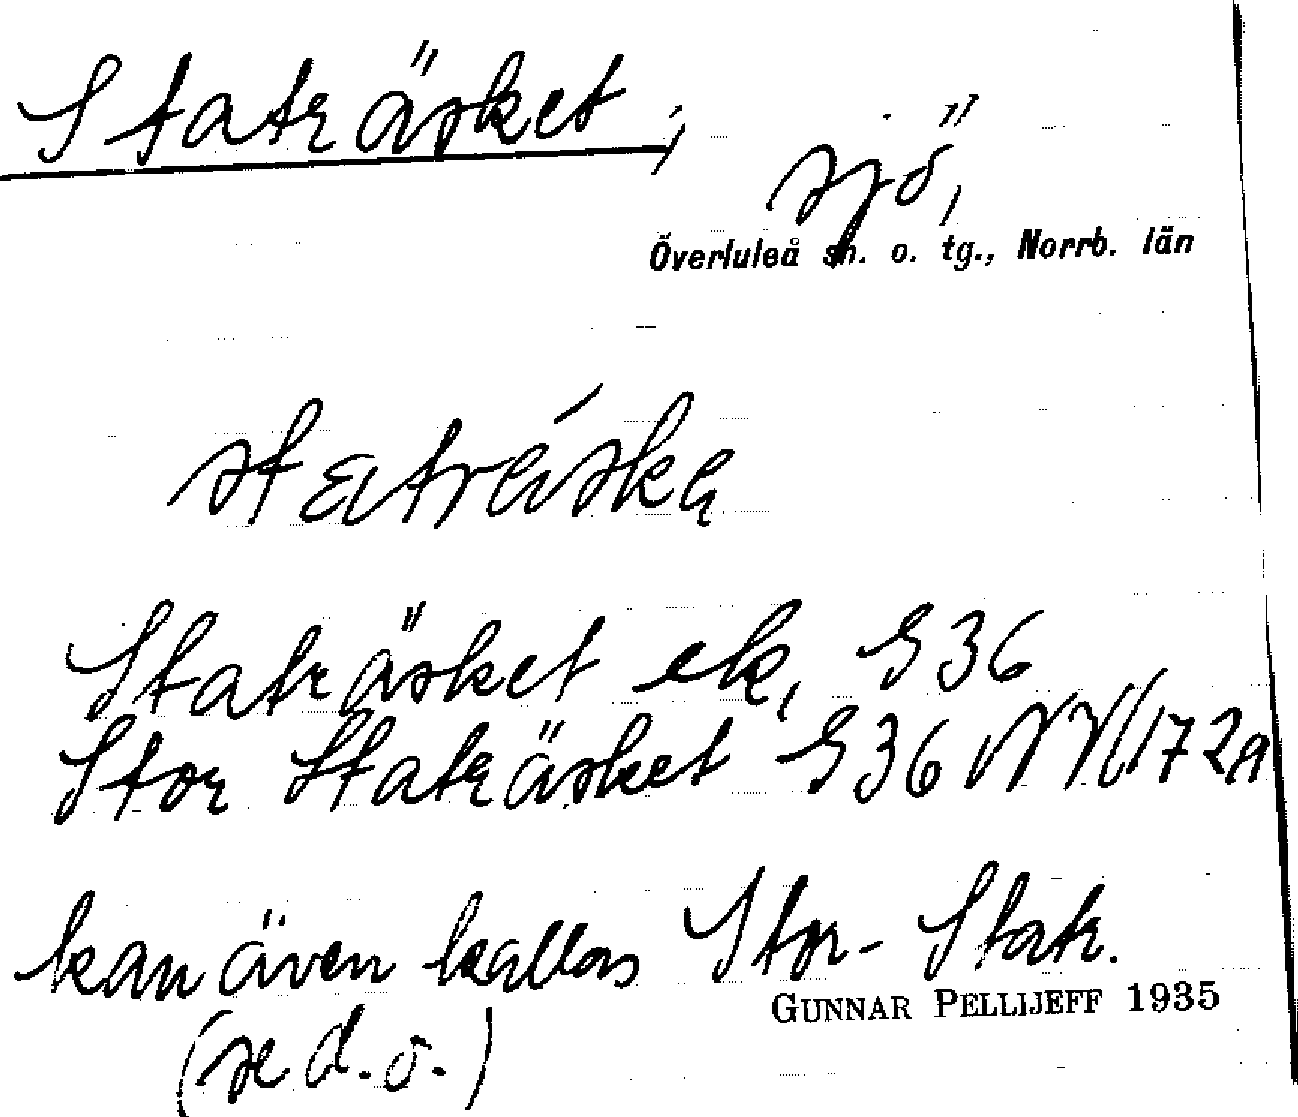 Staträsket,
sjö,
Överluleå sn. o. tg., Norrb. län
Staträsket ek, S 36
Stor Staträsket S 36
kan även kallas Stor-Statr.
GUNNAR PELLIJEFF 1935
(se d. o.)